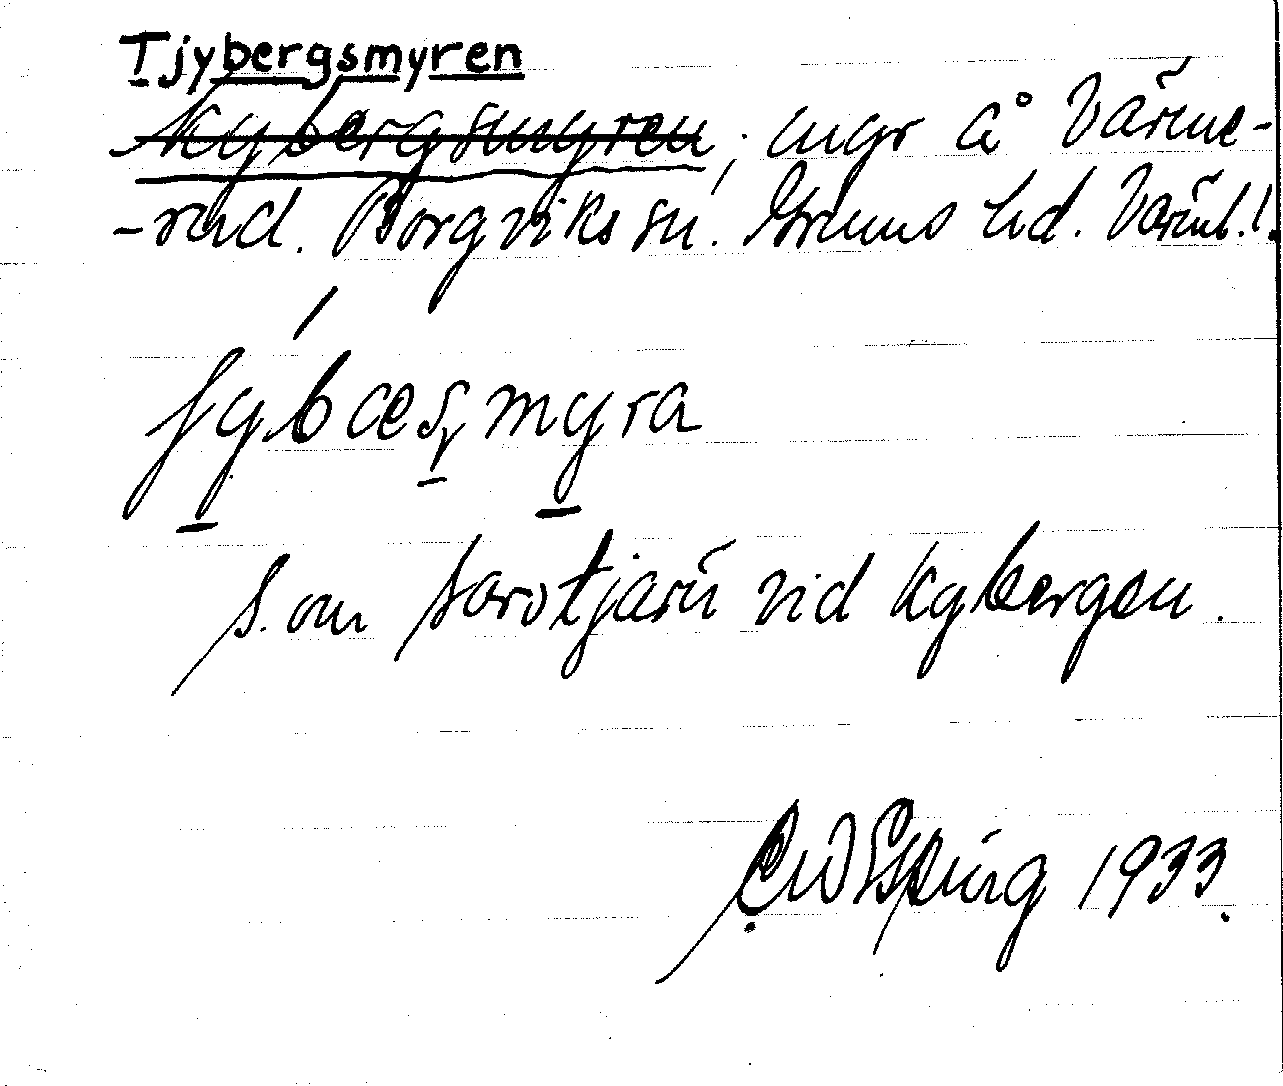 Tjybergsmyren
Kybergsmyren, myr å Värme-
-rud. Borgviks sn. Grums hd. Värml.l.
ʃýbæʂmyra
S. om Sorotjärn vid Kybergen.
1933.